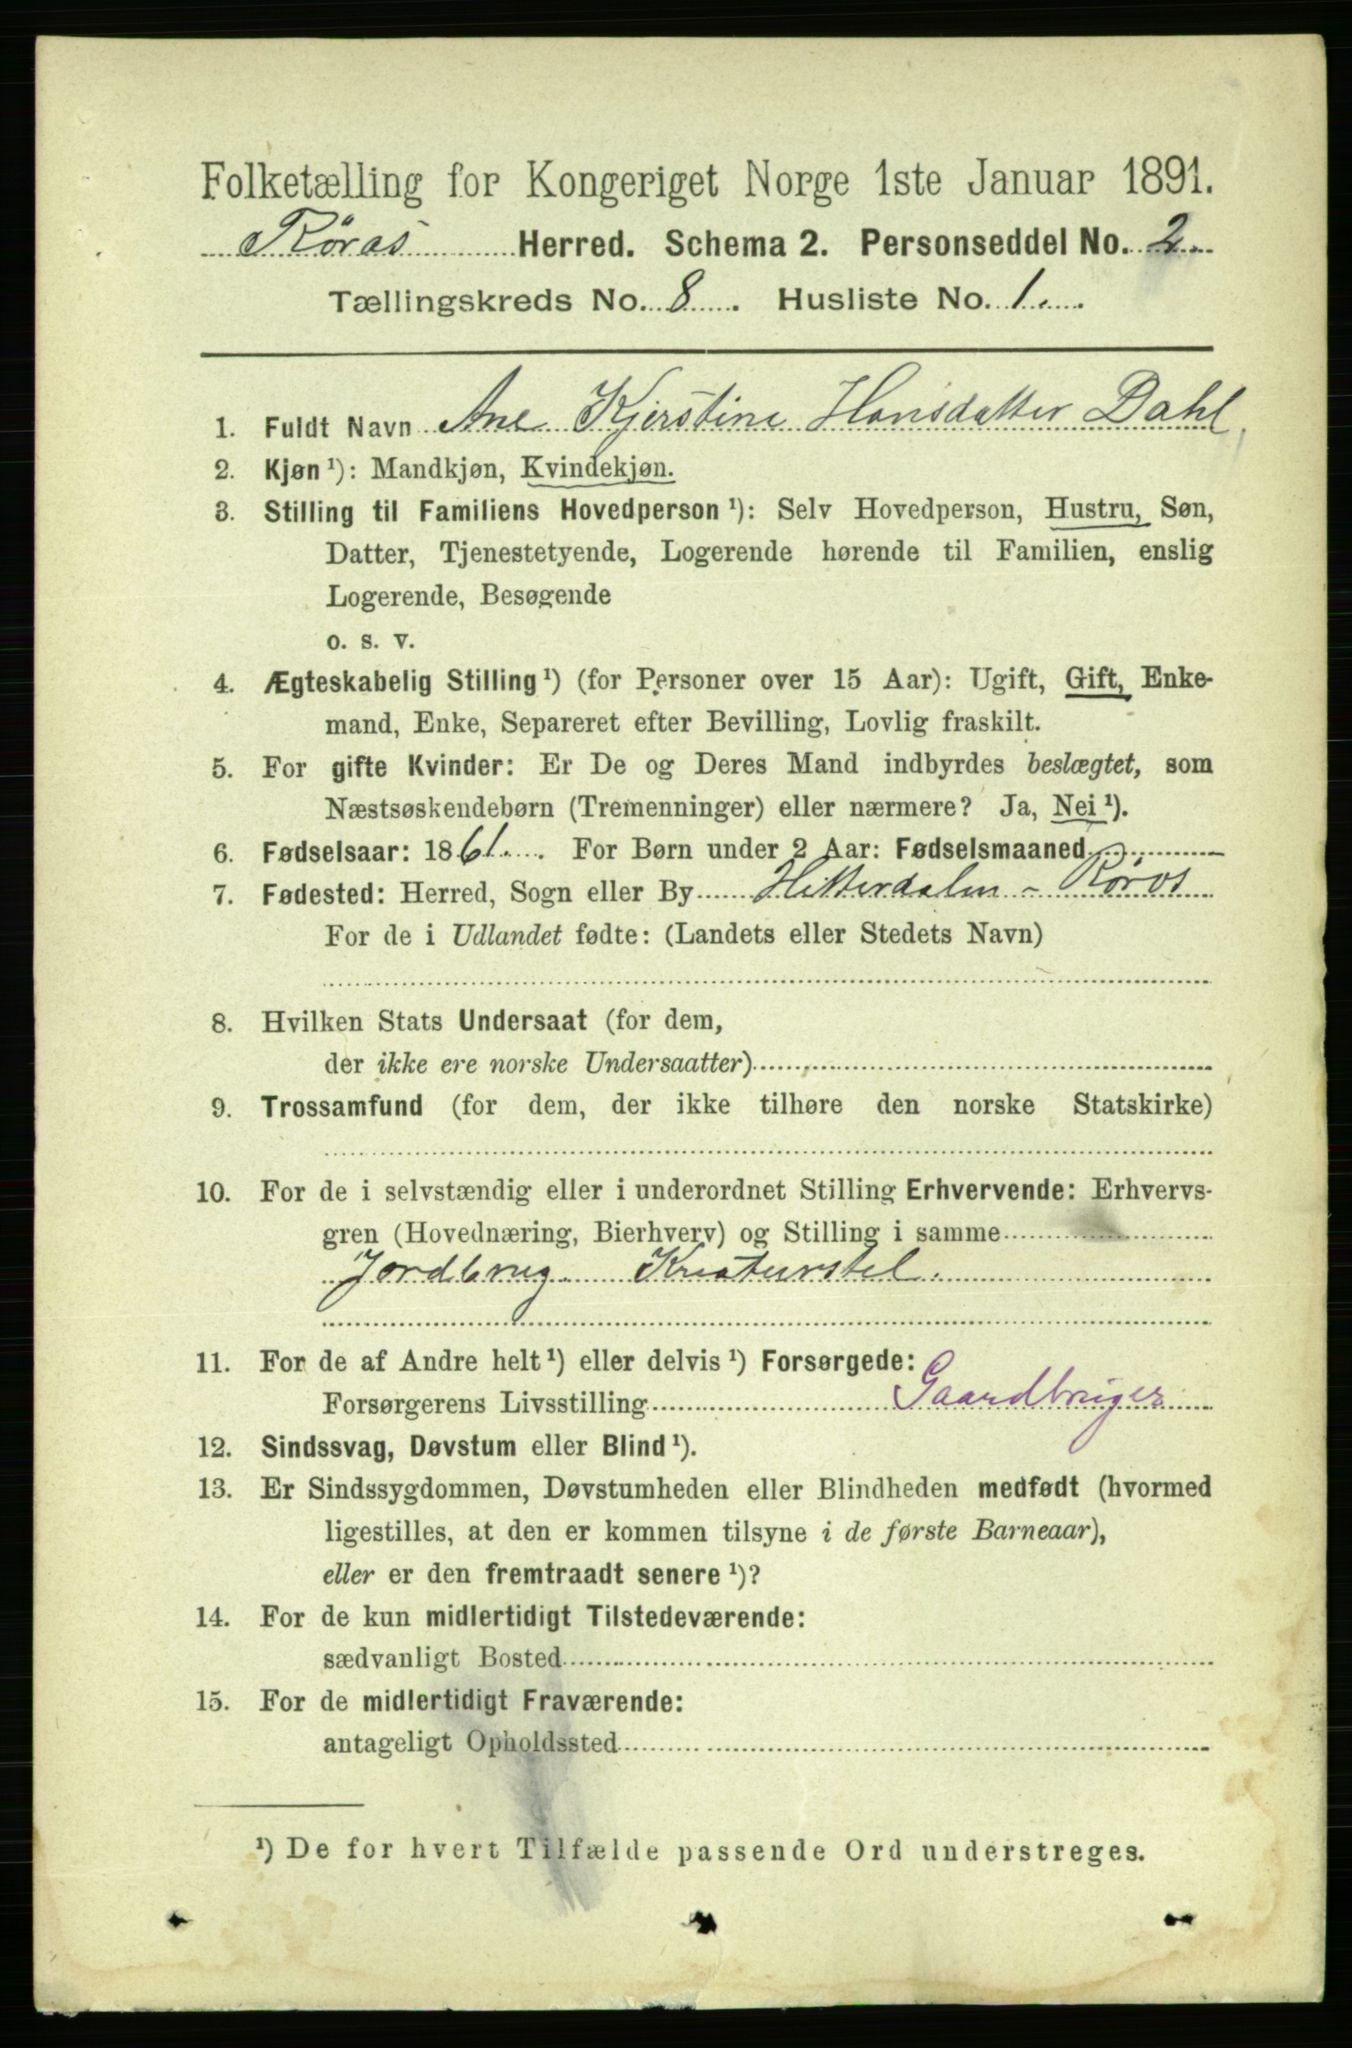 Folketælling for Kongeriget Norge 1ste Januar 1891.
Røros Herred. Schema 2. Personseddel No. 2.
Tællingskreds No. 8. Husliste No. 1.
1. Fuldt Navn Ane Kjerstine Hansdatter Dahl,
2. Kjøn ¹): Mandkjøn, Kvindekjøn.
3. Stilling til Familiens Hovedperson ¹): Selv Hovedperson, Hustru, Søn,
Datter, Tjenestetyende, Logerende hørende til Familien, enslig
Logerende, Besøgende
o. s. v.
4. Ægteskabelig Stilling ¹) (for Personer over 15 Aar): Ugift, Gift, Enke-
mand, Enke, Separeret efter Bevilling, Lovlig fraskilt.
5. For gifte Kvinder: Er De og Deres Mand indbyrdes beslægtet, som
Næstsøskendebørn (Tremenninger) eller nærmere? Ja, Nei ¹).
6. Fødselsaar: 1861. For Børn under 2 Aar: Fødselsmaaned
7. Fødested: Herred, Sogn eller By Hitterdalen - Røros
For de i Udlandet fødte: (Landets eller Stedets Navn)
8. Hvilken Stats Undersaat (for dem,
der ikke ere norske Undersaatter)
9. Trossamfund (for dem, der ikke tilhøre den norske Statskirke)
10. For de i selvstændig eller i underordnet Stilling Erhvervende: Erhvervs-
gren (Hovednæring, Bierhverv) og Stilling i samme
Jordbrug Kreaturstel.
11. For de af Andre helt ¹) eller delvis ¹) Forsørgede:
Forsørgerens Livsstilling Gaardbruger
12. Sindssvag, Døvstum eller Blind ¹).
13. Er Sindssygdommen, Døvstumheden eller Blindheden medfødt (hvormed
ligestilles, at den er kommen tilsyne i de første Barneaar),
eller er den fremtraadt senere ¹)?
14. For de kun midlertidigt Tilstedeværende:
sædvanligt Bosted
15. For de midlertidigt Fraværende:
antageligt Opholdssted
¹) De for hvert Tilfælde passende Ord understreges.